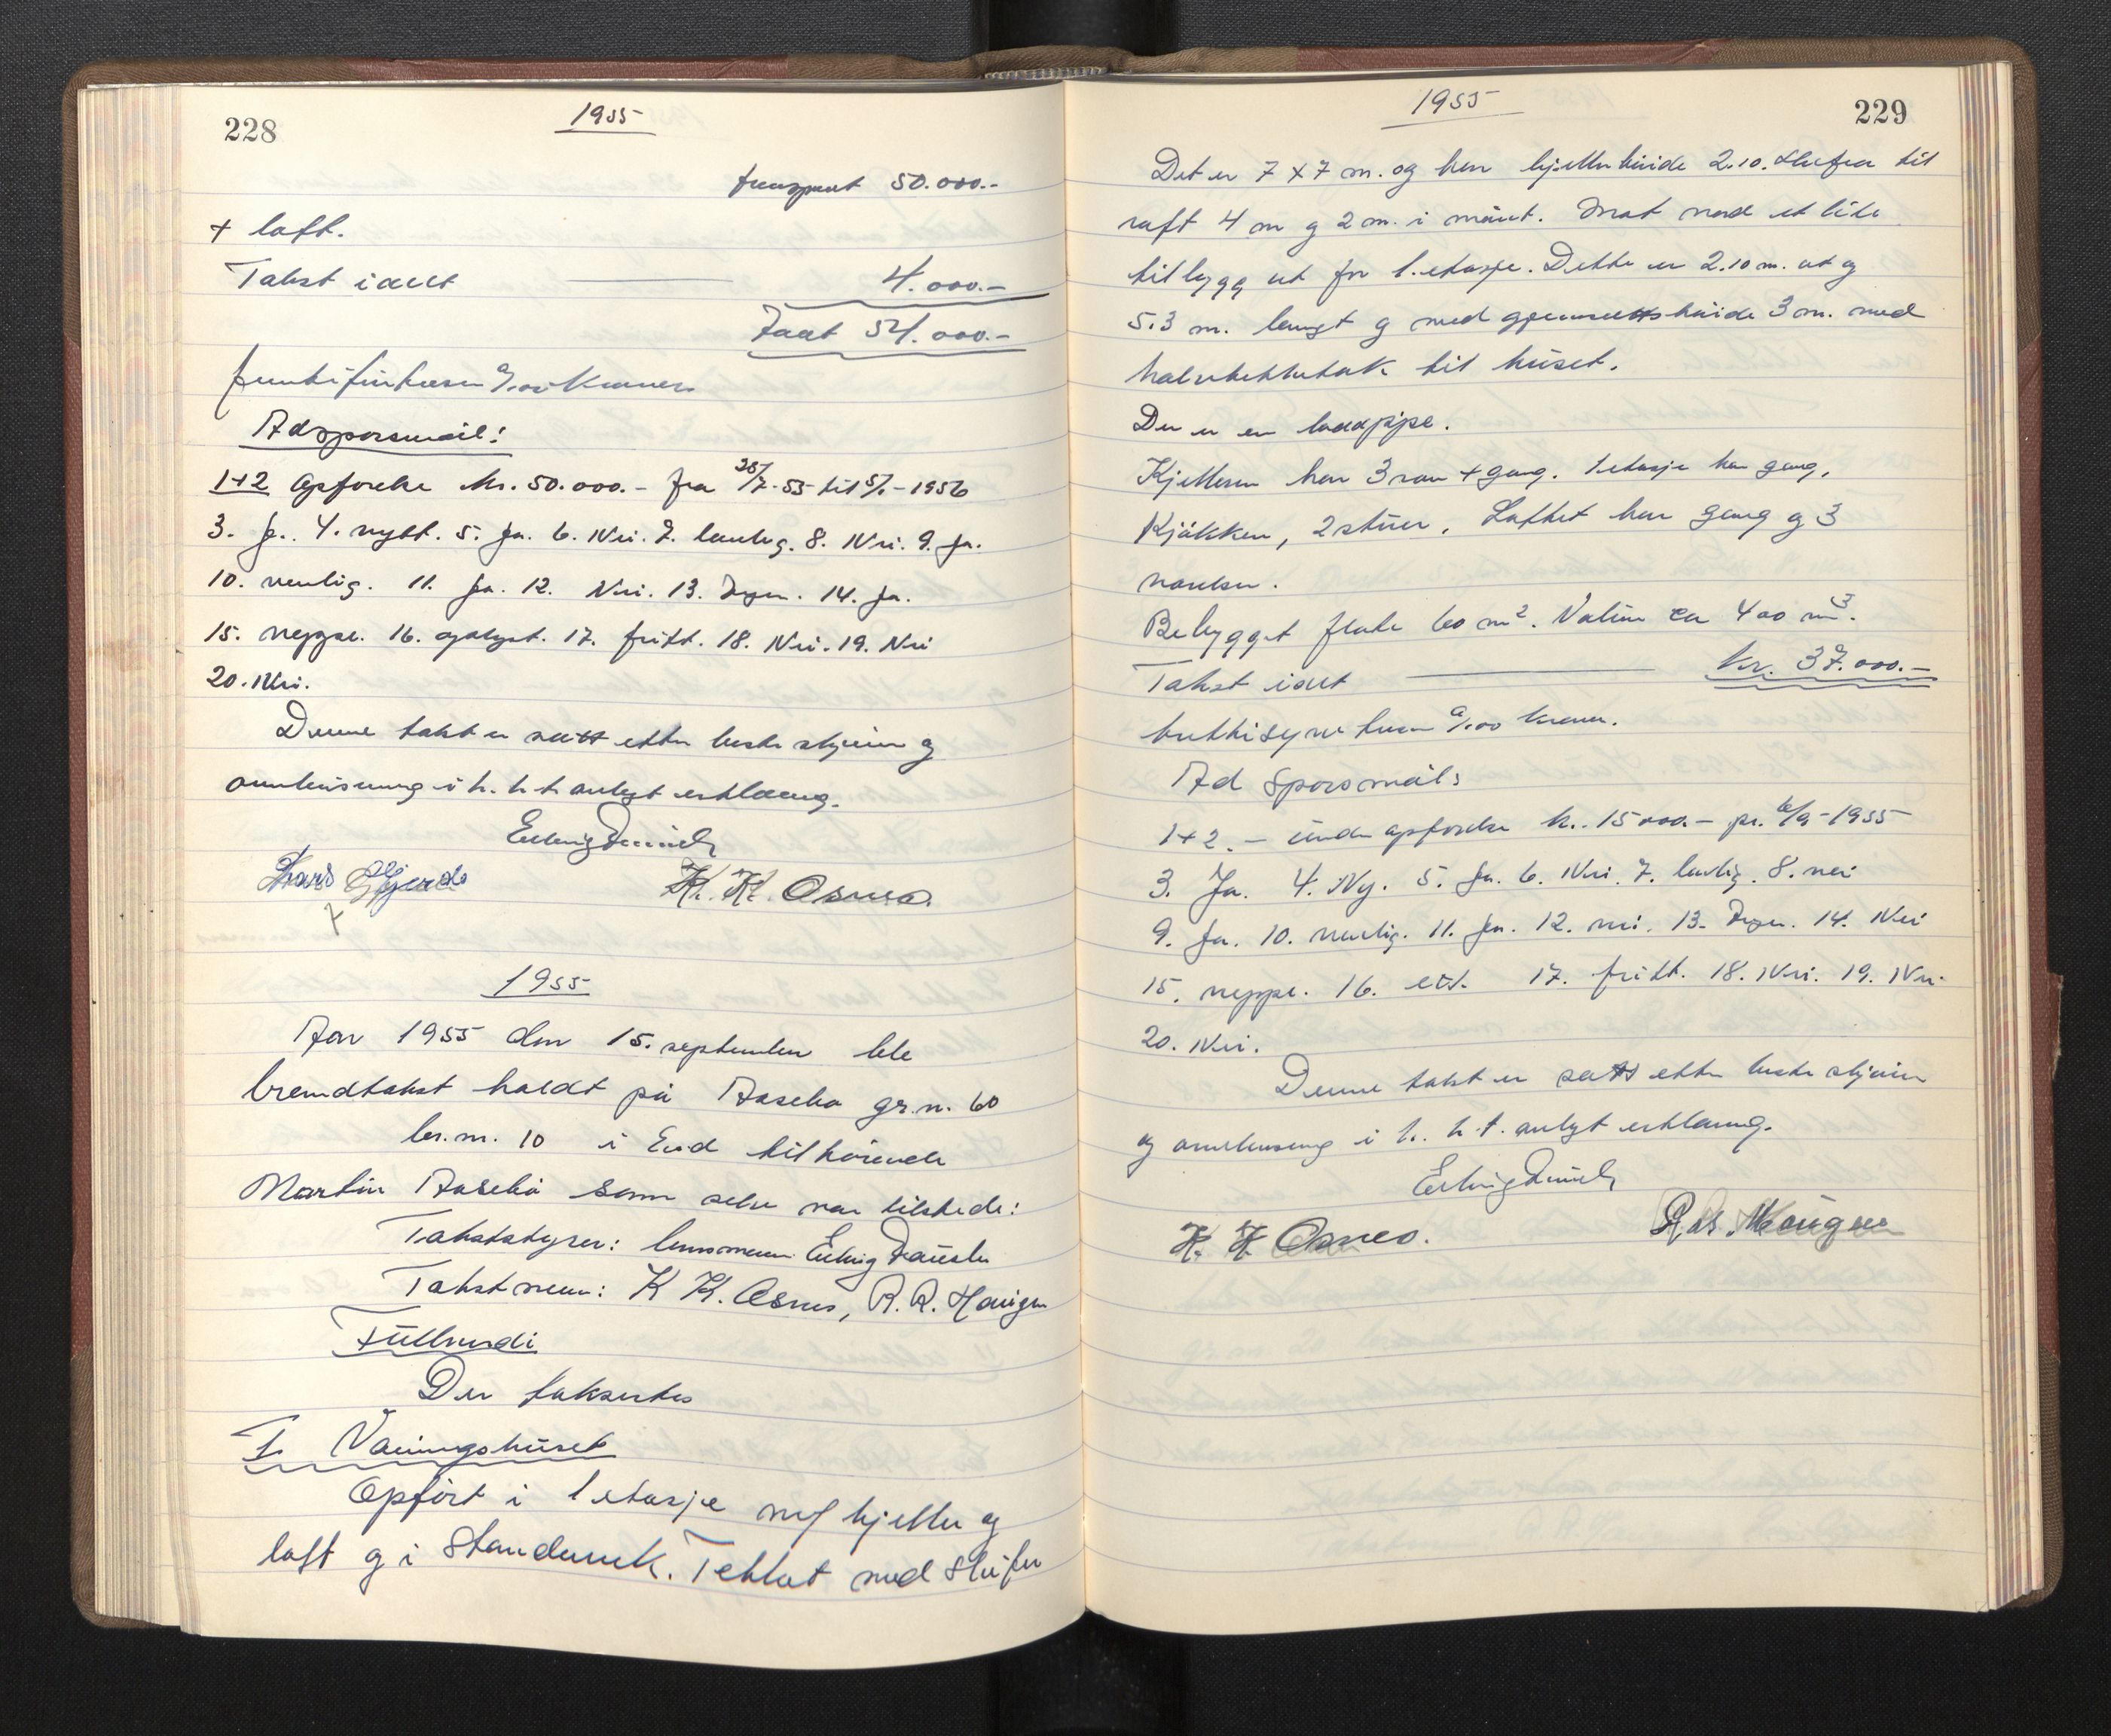 228
1955
transport 50.000.-
+ loft.
Takst i alt 4.000.-
I alt 54.000.-
femtifiretusen 0/00 kroner
Ad spörsmål:
1+2 Opförelse kr. 50.000.- fra 25/7-55 til 5/-1956
3. Ja. 4. nytt. 5. Ja. 6. Nei. 7. lovlig. 8. Nei. 9. Ja.
10. vanlig. 11. Ja. 12. Nei. 13. Ingen. 14. Ja.
15. neppe. 16. oplyst. 17. fritt. 18. Nei. 19. Nei
20. Nei.
Denne takst er satt etter beste skjönn og
overbevisning i h. h. t. avlagt erklæring.
Erling
Lars Gjerde
K. K. Osnes.
1955
Aar 1955 den 15. september ble
branntakst holdt på Aasebö gr.n. 60
br.n. 10 i Eid tilhörende
Martin Aasebö som selv var tilstede:
Takststyrer: lensmann Erling
Takstmenn: K K. Osnes, R. R. Haugen
Fullverdi
Der taksertes
1. Vaaningshuset
Opfört i 1 etasje m/ kjeller og
loft og i standverk. Tekket med skifer
1955
229
Det er 7 x 7 m. og har kjellerhöide 2.10. Derfra til
raft 4 m og 2 m. i mönet. Mot nord et lite
tilbygg ut for 1. etasje. Dette er 2.10 m. ut og
5.3 m. langt og med gjennomsnittshöide 3 m. med
halvtekketak til huset.
Der er en loddpipe.
Kjelleren har 3 rom + gang. 1 etasje har gang,
Kjökken, 2 stuer. Loftet har gang og 3
værelser.
Bebygget flate 60 m². Volum ca 400 m³.
Takst i alt kr. 37.000.-
trettisyv tusen 0/00 kroner.
Ad Spörsmål:
1+2. - under opförelse kr. 15000.- pr. 6/9-1955
3. Ja. 4. Ny. 5. Ja. 6. Nei. 7. lovlig. 8. nei
9. Ja. 10. vanlig. 11. Ja. 12. nei. 13. Ingen. 14. Nei
15. neppe. 16. ett. 17. fritt. 18. Nei. 19. Nei.
20. Nei.
Denne takst er satt etter beste skjönn
og overbevisning i h. h. t. avlagt erklæring.
Erling
K. K. Osnes.
R. R. Haugen